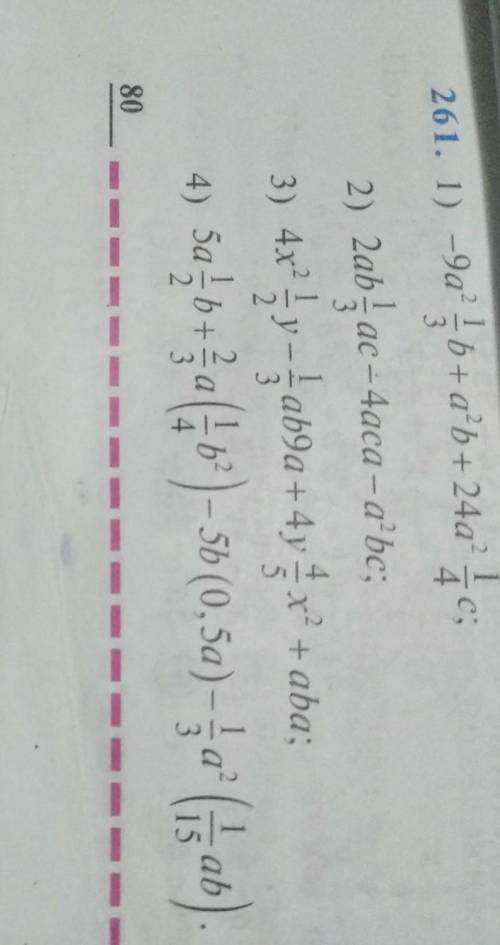 261. 1) –9a² 1/3 b + a²b + 24a² 1/4 c;
2) 2ab 1/3 ac – 4aca – a²bc;
3) 4x² 1/2 y – 1/3 ab9a + 4y 4/5 x² + aba;
4) 5a 1/2 b + 2/3 a (1/4 b²) – 5b (0,5a) – 1/3 a² (1/15 ab).
80